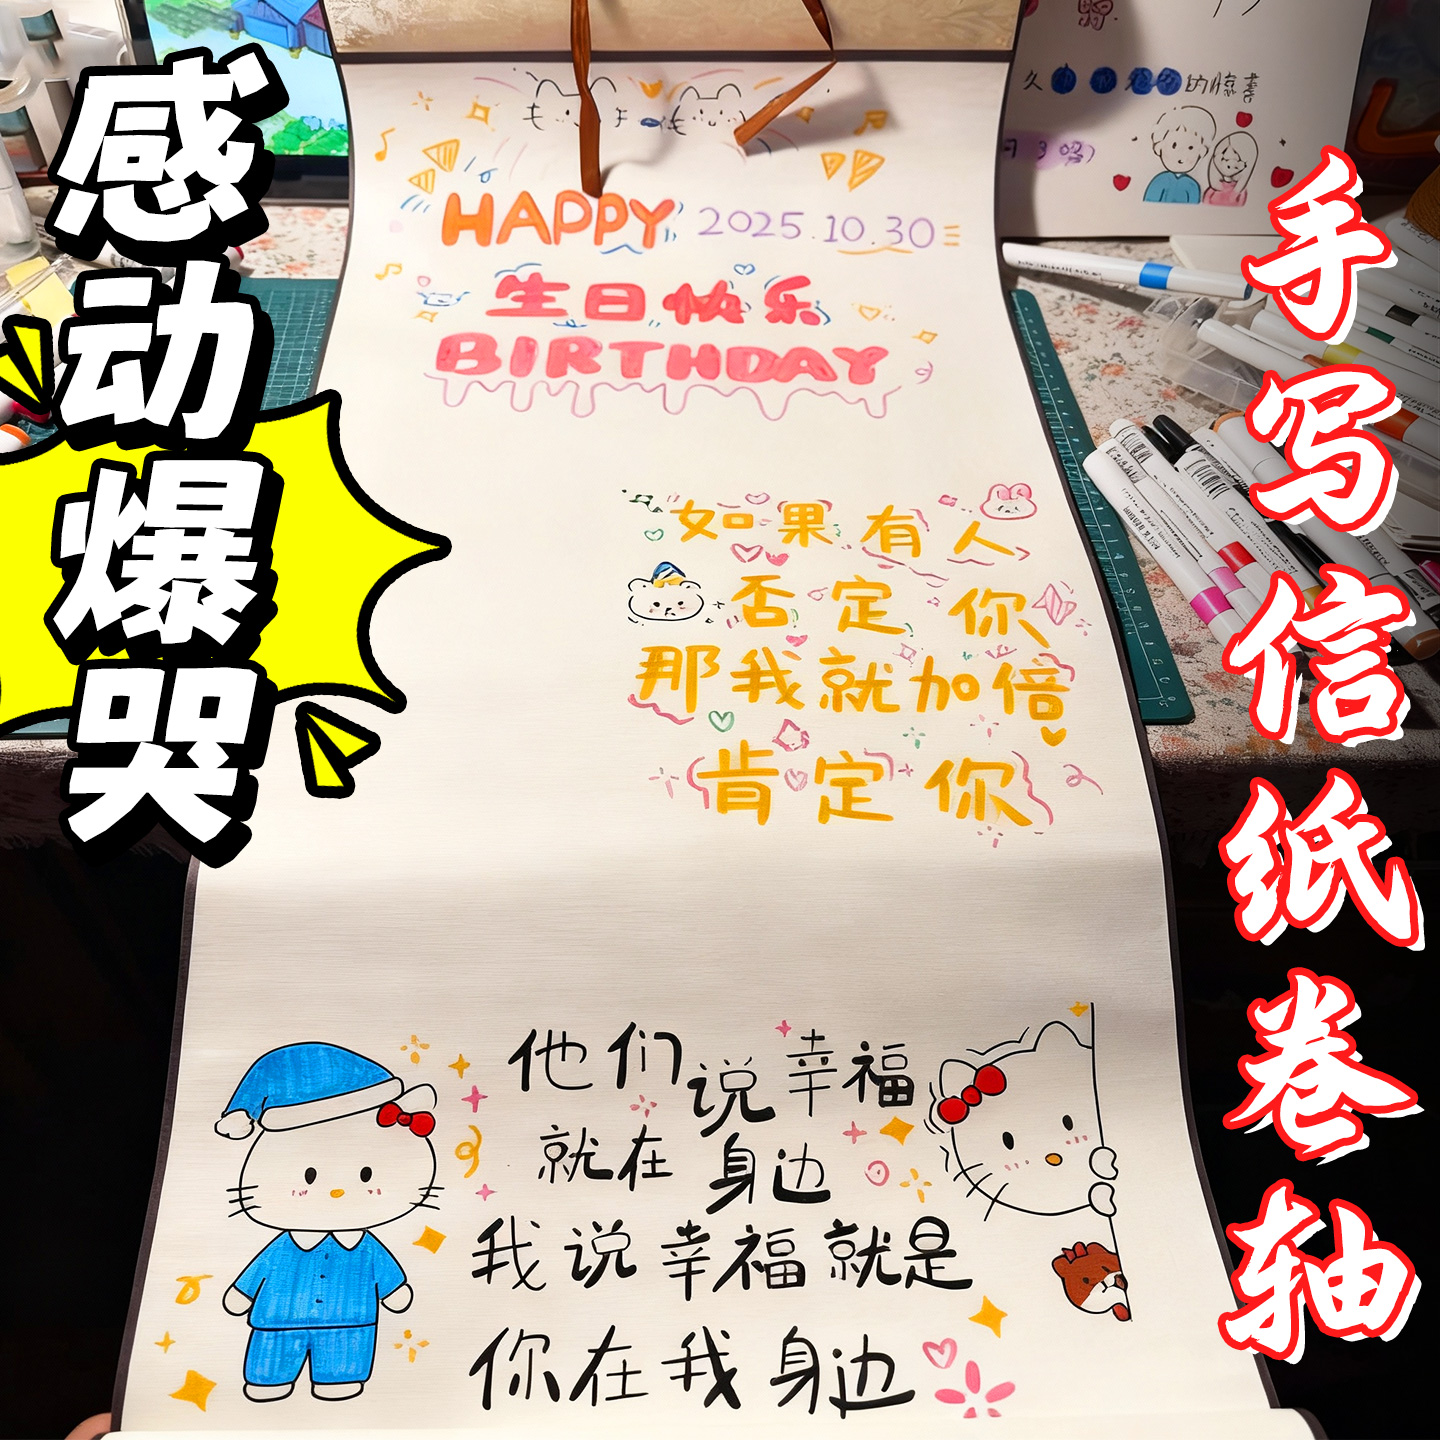 感动爆哭
手写信纸卷轴
HAPPY 2025.10.30
生日快乐
BIRTHDAY
如果有人
否定你
那我就加倍
肯定你
他们说幸福
就在身边
我说幸福就是
你在我身边
的惊喜